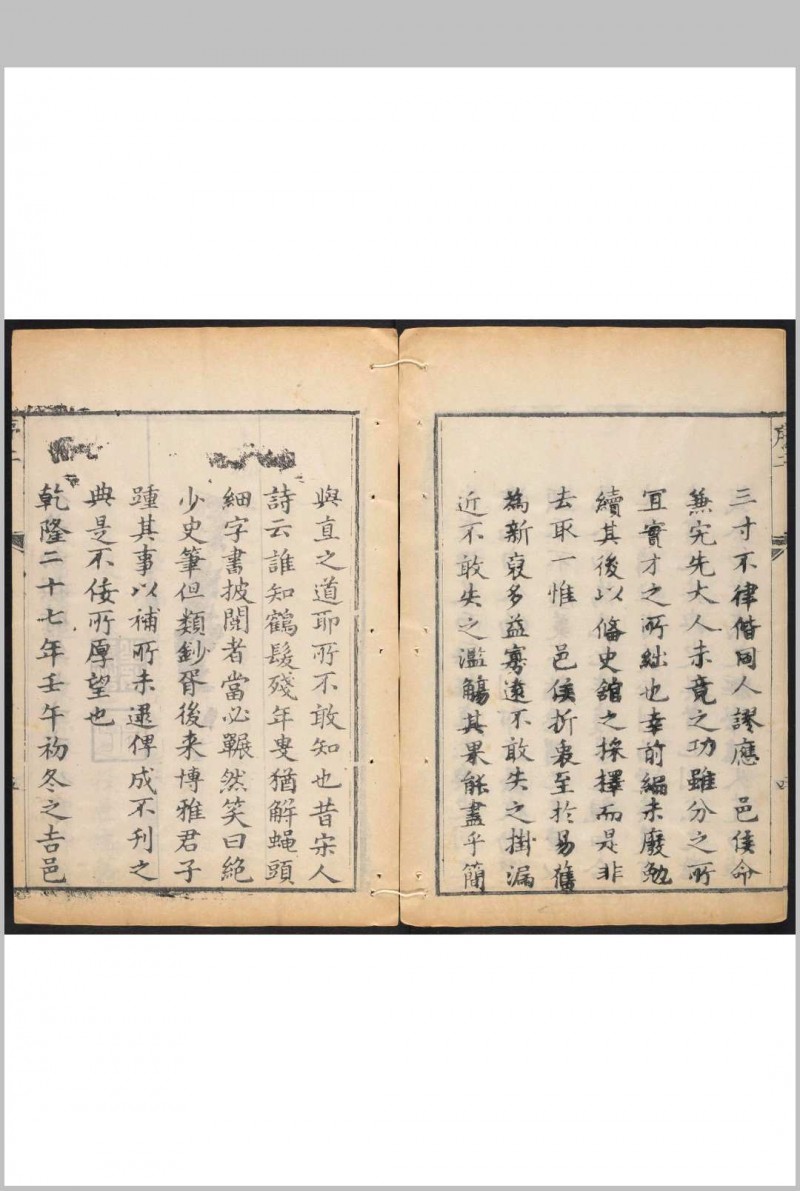 三寸不律偕同人謬應　邑侯命
兼完先大人未竟之功雖分之所
宜實才之所絀也幸前編未廢勉
續其後以俻史舘之採擇而是非
去取一惟　邑侯折衷至於易舊
為新裒多益寡遠不敢失之掛漏
近不敢失之濫觴其果能盡乎簡
與直之道耶所不敢知也昔宋人
詩云誰知鶴髮殘年叟猶解蝇頭
細字書披閱者當必囅然笑曰絶
少史筆但類鈔胥後来博雅君子
踵其事以補所未逮俾成不刊之
典是不佞所厚望也
乾隆二十七年壬午初冬之吉邑